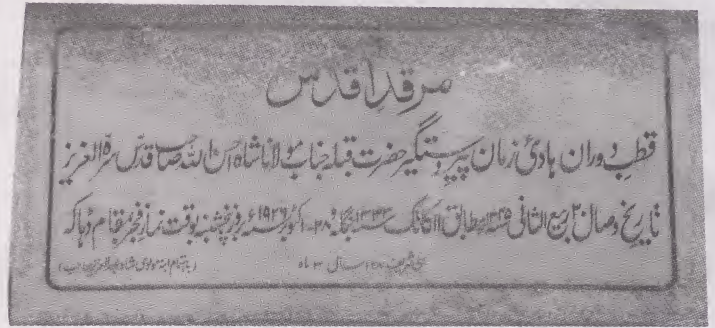 مرقدِ اقدس
قطبِ دوران ہادیٔ زمان پیرِ دستگیر حضرت قبلہ جناب مولانا شاہ احسن اللہ صاحب قدّس سرّہ العزیز
تاریخ وصال ۲۰ ربیع الثانی ۱۳۴۵ھ مطابق ۱۱ کاتک ۱۳۳۳ بنگلہ ۲۸۔ اکتوبر ۱۹۲۶ء بروز پنجشنبہ بوقت نماز فجر بمقام ڈھاکہ
سال ۳ ماہ (باہتمام ابنہ مولوی شاہ عبدالعزیز صاحب)